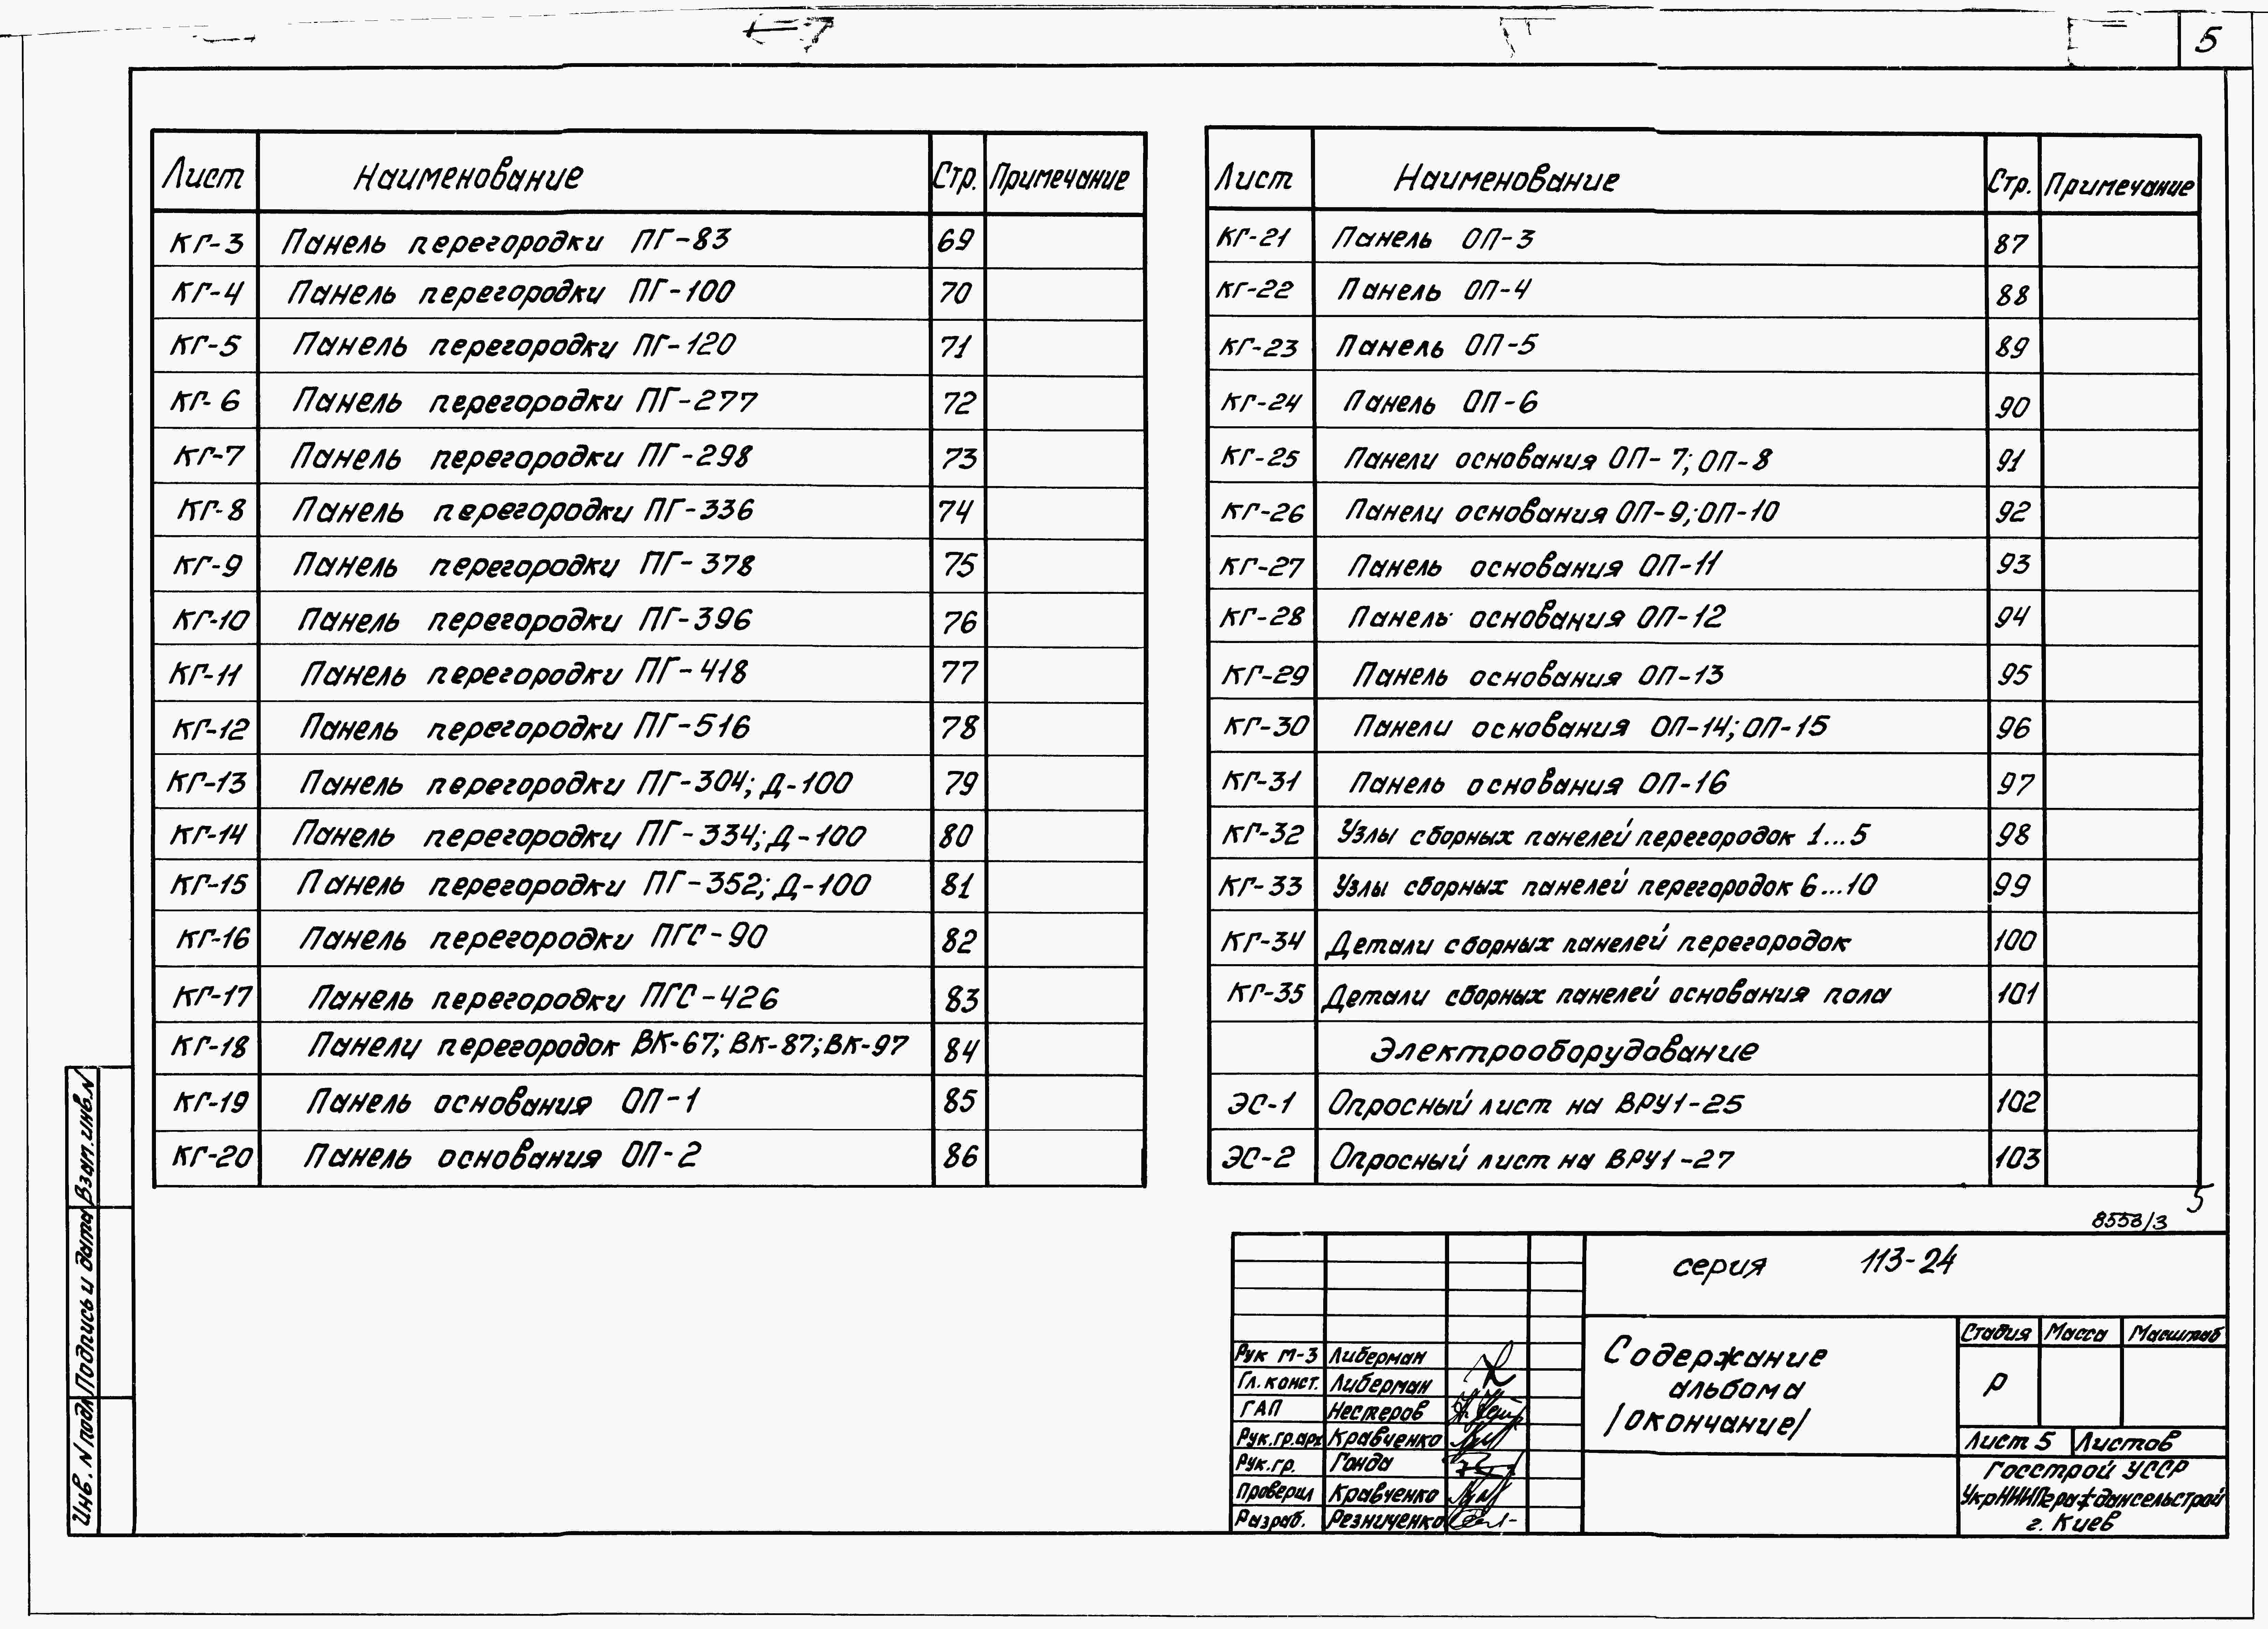 5
Лист Наименование Стр. Примечание
КГ-3 Панель перегородки ПГ-83 69
КГ-4 Панель перегородки ПГ-100 70
КГ-5 Панель перегородки ПГ-120 71
КГ-6 Панель перегородки ПГ-277 72
КГ-7 Панель перегородки ПГ-298 73
КГ-8 Панель перегородки ПГ-336 74
КГ-9 Панель перегородки ПГ-378 75
КГ-10 Панель перегородки ПГ-396 76
КГ-11 Панель перегородки ПГ-418 77
КГ-12 Панель перегородки ПГ-516 78
КГ-13 Панель перегородки ПГ-304; Д-100 79
КГ-14 Панель перегородки ПГ-334; Д-100 80
КГ-15 Панель перегородки ПГ-352; Д-100 81
КГ-16 Панель перегородки ПГС-90 82
КГ-17 Панель перегородки ПГС-426 83
КГ-18 Панели перегородок ВК-67; ВК-87; ВК-97 84
КГ-19 Панель основания ОП-1 85
КГ-20 Панель основания ОП-2 86
Лист Наименование Стр. Примечание
КГ-21 Панель ОП-3 87
КГ-22 Панель ОП-4 88
КГ-23 Панель ОП-5 89
КГ-24 Панель ОП-6 90
КГ-25 Панели основания ОП-7; ОП-8 91
КГ-26 Панели основания ОП-9; ОП-10 92
КГ-27 Панель основания ОП-11 93
КГ-28 Панель основания ОП-12 94
КГ-29 Панель основания ОП-13 95
КГ-30 Панели основания ОП-14; ОП-15 96
КГ-31 Панель основания ОП-16 97
КГ-32 Узлы сборных панелей перегородок 1...5 98
КГ-33 Узлы сборных панелей перегородок 6...10 99
КГ-34 Детали сборных панелей перегородок 100
КГ-35 Детали сборных панелей основания пола 101
Электрооборудование
ЭС-1 Опросный лист на ВРУ1-25 102
ЭС-2 Опросный лист на ВРУ1-27 103
5
8558/3
серия 113-24
Содержание
альбома
/окончание/
Стадия Масса Масштаб
Р
Лист 5 Листов
Госстрой УССР
УкрНИИПграждансельстрой
г. Киев
Рук М-3 Либерман
Гл. конст. Либерман
ГАП Нестеров
Рук.гр.арх Кравченко
Рук.гр. Гонда
Проверил Кравченко
Разраб. Резниченко
Взам.инв.N
Подпись и дата
Инв. N подл